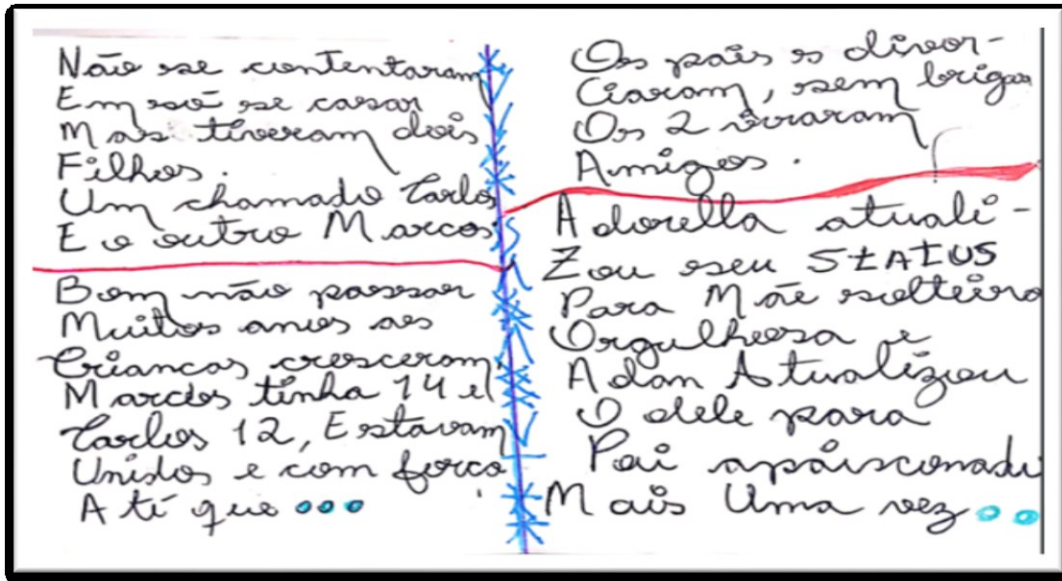 Não se contentaram
Em só se casar
Mas tiveram dois
Filhos.
Um chamado Carlos
E o outro Marcos
Bom não passar
Muitos anos as
Crianças cresceram,
Marcos tinha 14 e
Carlos 12, Estavam
Unidos e com força
Até que ...
Os pais s divor-
Ciaram, sem brigas
Os 2 viraram
Amigos.
Adorella atuali-
Zou seu STATUS
Para Mãe solteira
Orgulhosa e
Adam Atualizou
O dele para
Pai apaisconado
Mais Uma vez ..